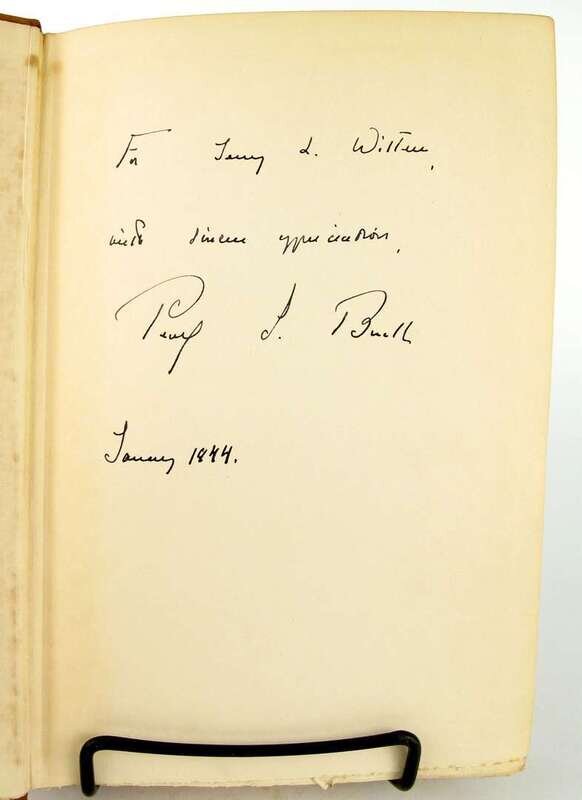 For Jerry L. Witten,
with sincere appreciation,
Pearl S. Buck
January 1944.